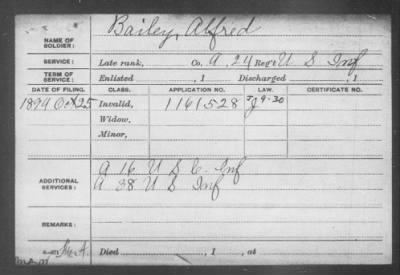 Bailey, Alfred
NAME OF SOLDIER:
SERVICE: Late rank, Co. A, 24 Reg't U S Inf
TERM OF SERVICE: Enlisted , 1 Discharged , 1
DATE OF FILING. CLASS. APPLICATION NO. LAW. CERTIFICATE NO.
1894 Oct 25 Invalid, 1161,528
Widow,
Minor,
ADDITIONAL SERVICES: A 16 U S C Inf
A 38 U S Inf
REMARKS:
Died , 1 , at